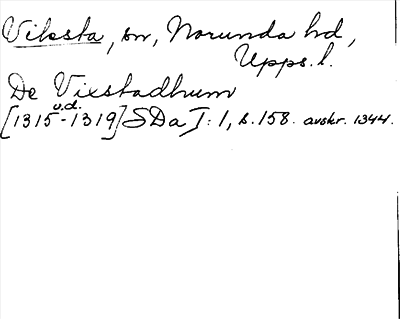 Viksta, sn, Norunda hd,
Upps. l.
De Vixstadhum
u.d.
[1315-1319] SDa I: 1, s. 158. avskr. 1344.